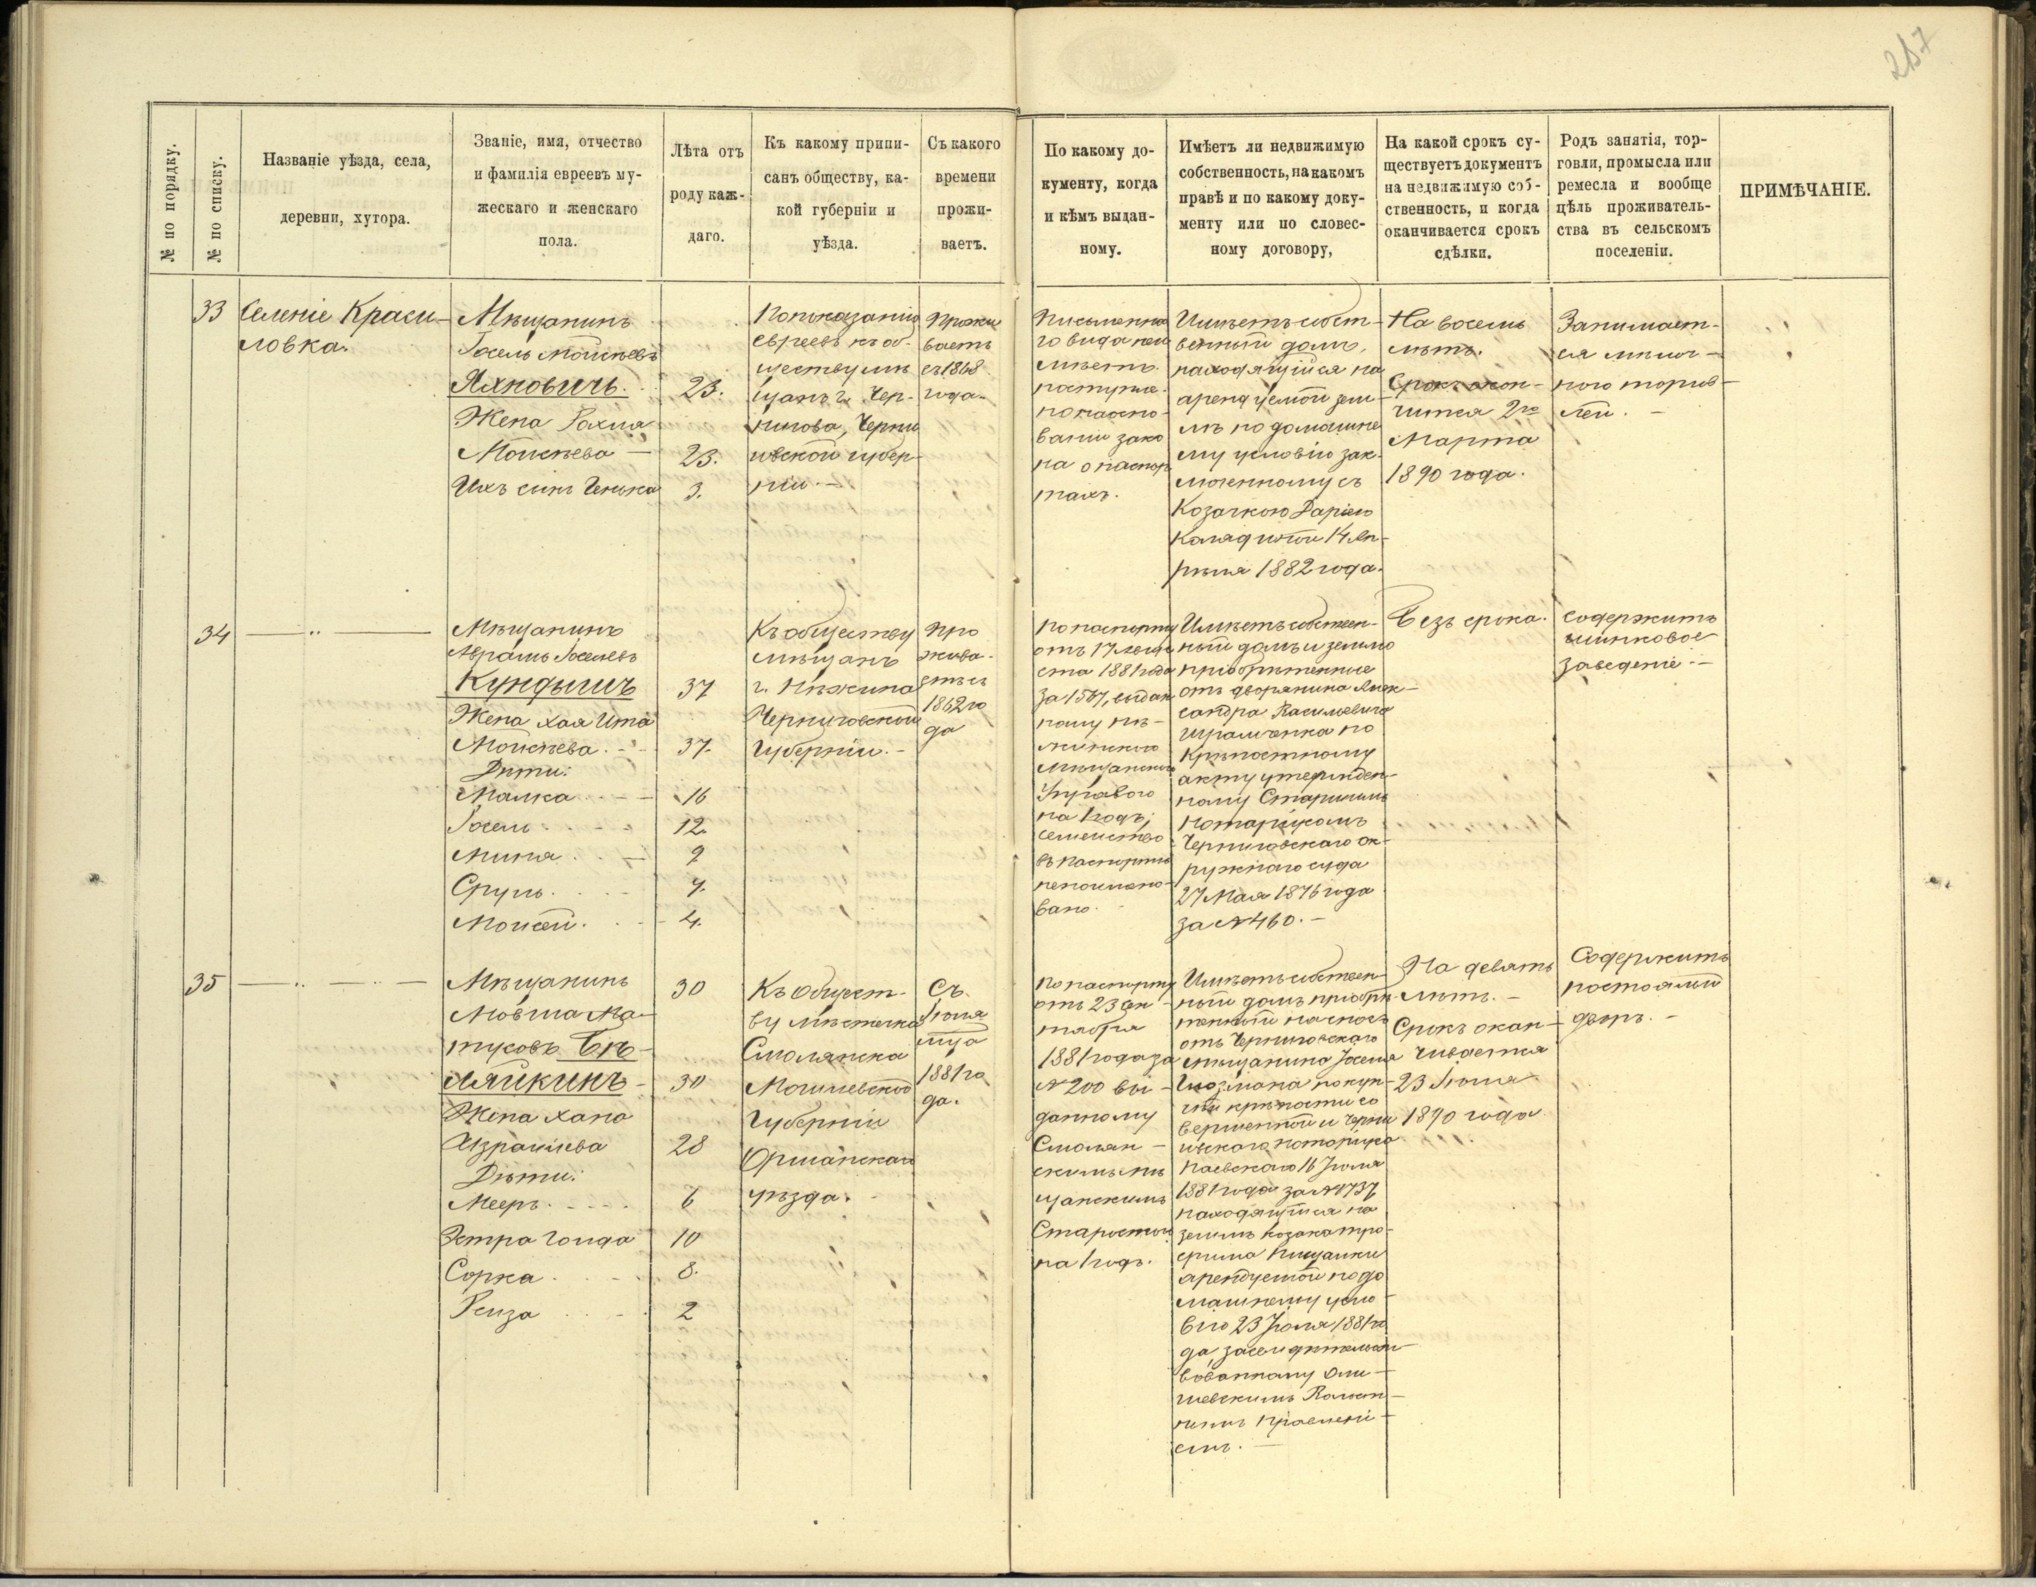 217
№ по порядку.
№ по списку.
Названіе уѣзда, села,
деревни, хутора.
Званіе, имя, отчество
и фамилія евреевъ му-
жескаго и женскаго
пола.
Лѣта отъ
роду каж-
даго.
Къ какому припи-
санъ обществу, ка-
кой губерніи и
уѣзда.
Съ какого
времени
прожи-
ваетъ.
По какому до-
кументу, когда
и кѣмъ выдан-
ному.
Имѣетъ ли недвижимую
собственность, на какомъ
правѣ и по какому доку-
менту или по словес-
ному договору,
На какой срокъ су-
ществуетъ документъ
на недвижимую соб-
ственность, и когда
оканчивается срокъ
сдѣлки.
Родъ занятія, тор-
говли, промысла или
ремесла и вообще
цѣль проживатель-
ства въ сельскомъ
поселеніи.
ПРИМѢЧАНІЕ.
33
Селеніе Краси-
ловка.
Мѣщанинъ
Іосель Мойсѣевъ
Яхновичъ.
Жена Рохля
Мойсѣева —
Ихъ сынъ
23.
23.
3.
По показанію
евреевъ къ об-
ществу мѣ
щанъ г. Чер-
нигова, Черни
говской губер-
ніи. —
Прожи
ваетъ
съ 1868
года.
Письменна
го вида не и
мѣетъ.
на осно-
ваніи зако
на о паспор
тахъ.
Имѣетъ собст-
венный домъ,
находящійся на
арендуемой зем-
лѣ по домашне
му условію зак-
люченному съ
Козачкою Даріею
Калядиной 14 Ап-
рѣля 1882 года.
На восемь
лѣтъ.
Срокъ окон-
чится 2го
Марта
1890 года.
Занимает-
ся мѣлоч-
ною торгов-
лей. —
34
— " —
Мѣщанинъ
Абрамъ Іоселевъ
Кундышъ
Жена Хая Ита
Мойсѣева. —
Дѣти:
Малка
Іосель
Миня
Сруль
Мойсей
37
37.
16
12.
9
7.
4.
Къ обществу
мѣщанъ
г. Нѣжина
Черниговской
Губерніи. —
Про
жива-
етъ съ
1862 го
да
По паспорту
отъ 17 Авгу
ста 1881 года
за 1567, выдан
ному Нѣ-
жинскою
Мѣщанскою
Управою
на 1 годъ;
семейство
въ паспортѣ
непоимено-
вано.
Имѣетъ собствен-
ный домъ и землю
пріобрѣтенные
отъ дворянина Алек-
сандра Василіевича
Шраменка по
Крѣпостному
акту утвержден-
ному Старшимъ
Нотаріусомъ
Черниговскаго ок-
ружнаго суда
27 Мая 1876 года
за № 460. —
Безъ срока.
Содержитъ
шинковое
заведеніе. —
35
— " — " —
Мѣщанинъ
Мовша Ма-
тусовъ Бѣ-
ляйкинъ —
Жена Хана
Израилева
Дѣти:
Мееръ
Эстра Гоида
Сорка
Реиза
30
30
28
6
10
8.
2
Къ Общест-
ву мѣстечка
Смолянска
Могилевской
Губерніи
Оршанскаго
уѣзда.
Съ
Іюля
мца
1881 го
да.
По паспорту
отъ 23 Ок-
тября
1881 года за
№ 200 вы-
данному
Смолян-
скимъ мѣ
щанскимъ
Старостою
на 1 годъ.
Имѣетъ собствен-
ный домъ пріобрѣ-
тенный на сносъ
отъ Черниговскаго
мѣщанина Іоселя
Гиозмана по куп-
чей крѣпости со
вершенной у Черни
говскаго нотаріуса
Маевскаго 16 Іюля
1881 года за № 1737
находящійся на
землѣ козака Про-
арендуемой по до
машнему усло-
вію 23 Іюля 1881 го
да, засвидѣтельст-
вованному Оли-
шевскимъ Волост-
нымъ Правлені-
емъ. —
На девять
лѣтъ. —
Срокъ окан-
чивается
23 Іюля
1890 года.
Содержитъ
постоялый
дворъ. —